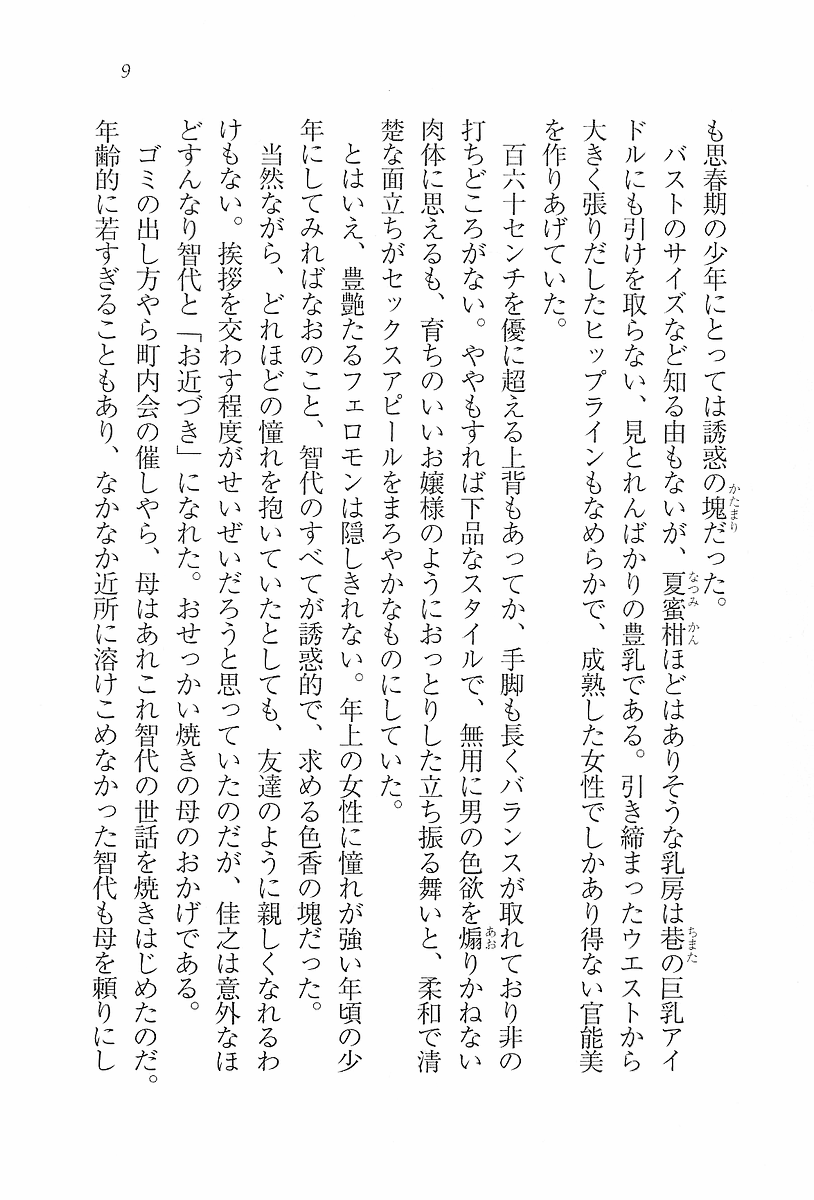 9
も思春期の少年にとっては誘惑の塊だった。
バストのサイズなど知る由もないが、夏蜜柑ほどはありそうな乳房は巷の巨乳アイ
ドルにも引けを取らない、見とれんばかりの豊乳である。引き締まったウエストから
大きく張りだしたヒップラインもなめらかで、成熟した女性でしかあり得ない官能美
を作りあげていた。
百六十センチを優に超える上背もあってか、手脚も長くバランスが取れており非の
打ちどころがない。ややもすれば下品なスタイルで、無用に男の色欲を煽りかねない
肉体に思えるも、育ちのいいお嬢様のようにおっとりした立ち振る舞いと、柔和で清
楚な面立ちがセックスアピールをまろやかなものにしていた。
とはいえ、豊艶たるフェロモンは隠しきれない。年上の女性に憧れが強い年頃の少
年にしてみればなおのこと、智代のすべてが誘惑的で、求める色香の塊だった。
当然ながら、どれほどの憧れを抱いていたとしても、友達のように親しくなれるわ
けもない。挨拶を交わす程度がせいぜいだろうと思っていたのだが、佳之は意外なほ
どすんなり智代と「お近づき」になれた。おせっかい焼きの母のおかげである。
ゴミの出し方やら町内会の催しやら、母はあれこれ智代の世話を焼きはじめたのだ。
年齢的に若すぎることもあり、なかなか近所に溶けこめなかった智代も母を頼りにし